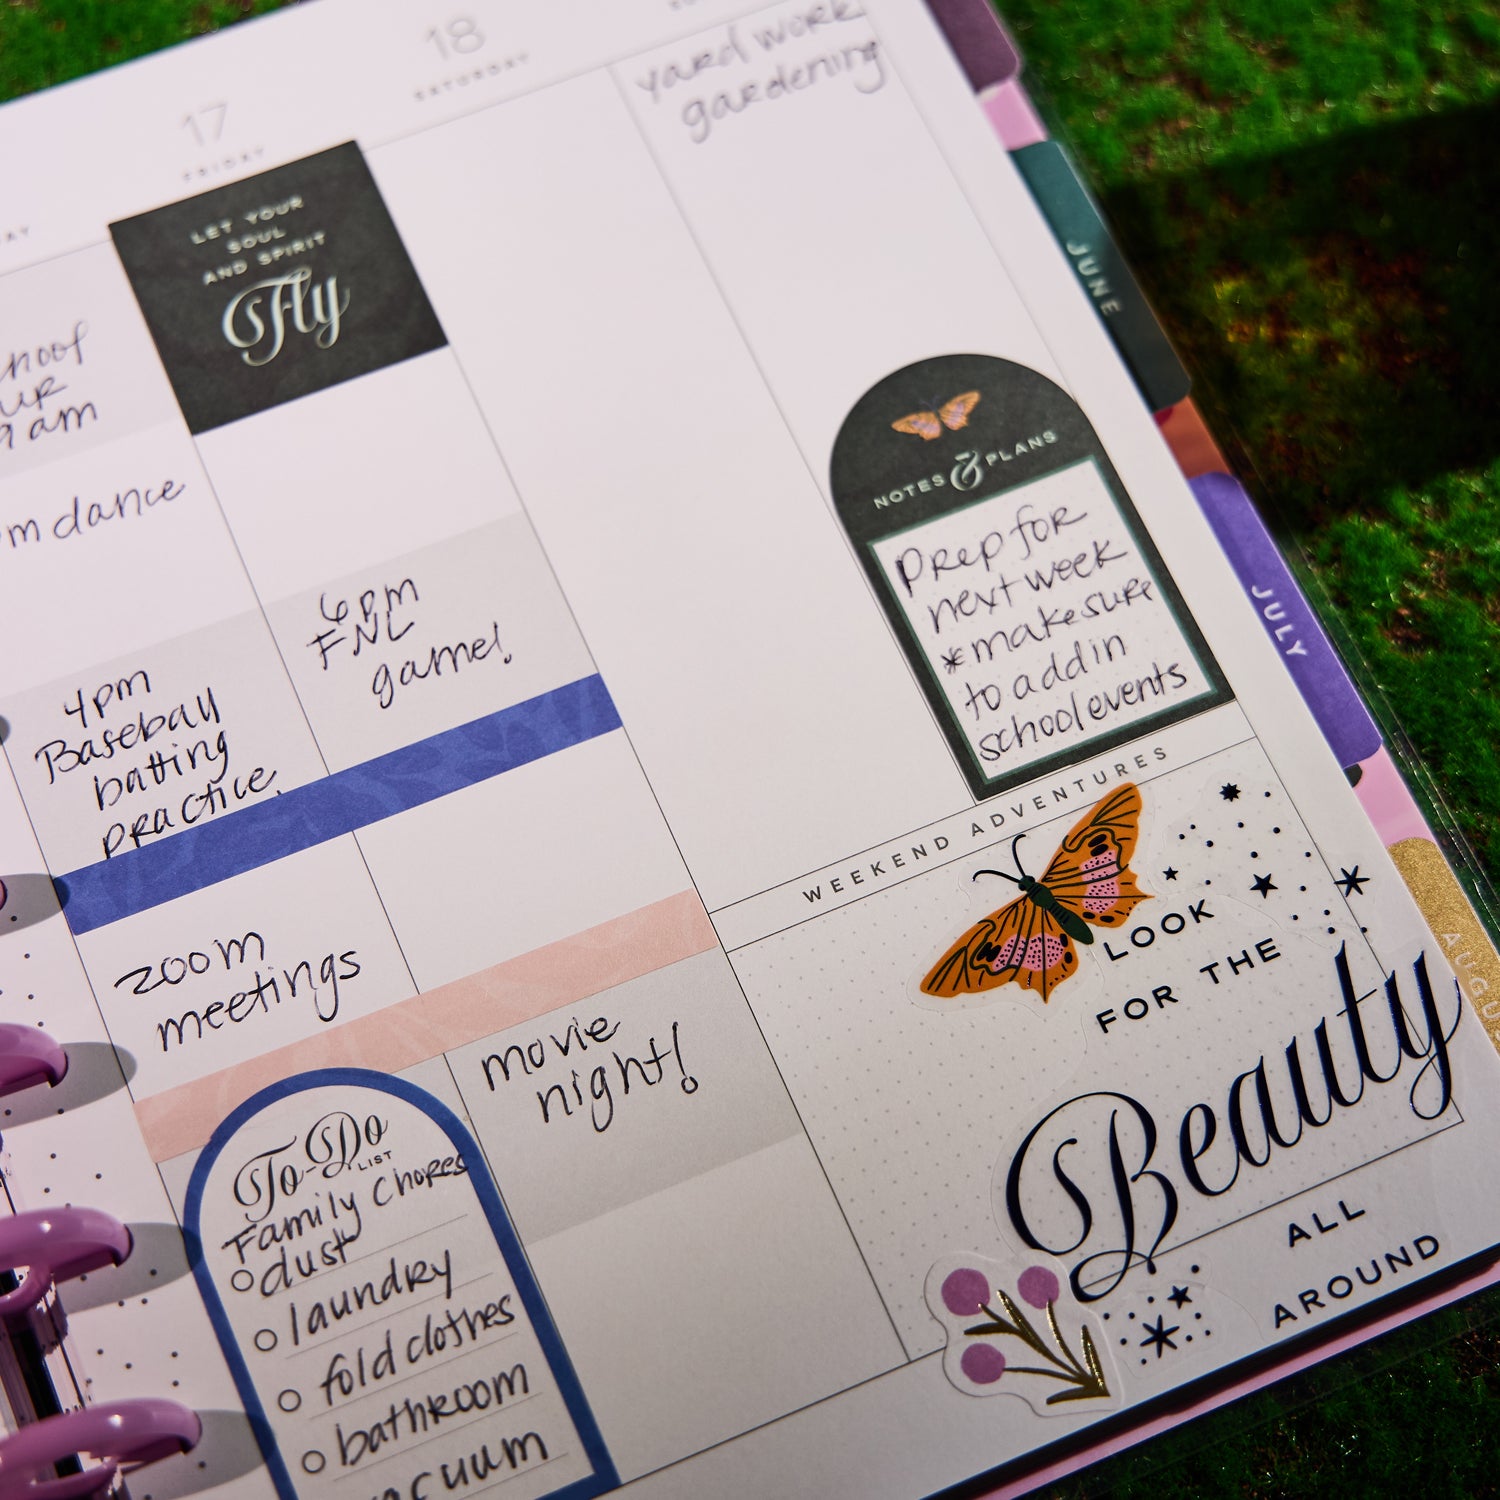 17
FRIDAY
18
SATURDAY
yard work
gardening
LET YOUR
SOUL
AND SPIRIT
Fly
9am
dance
4pm
Baseball
batting
practice.
6pm
FNL
game!
zoom
meetings
movie
night!
To-Do
LIST
Family Chores
dust
laundry
fold clothes
bathroom
vacuum
NOTES & PLANS
Prep for
next week
*make sure
to add in
school events
WEEKEND ADVENTURES
LOOK
FOR THE
Beauty
ALL
AROUND
JUNE
JULY